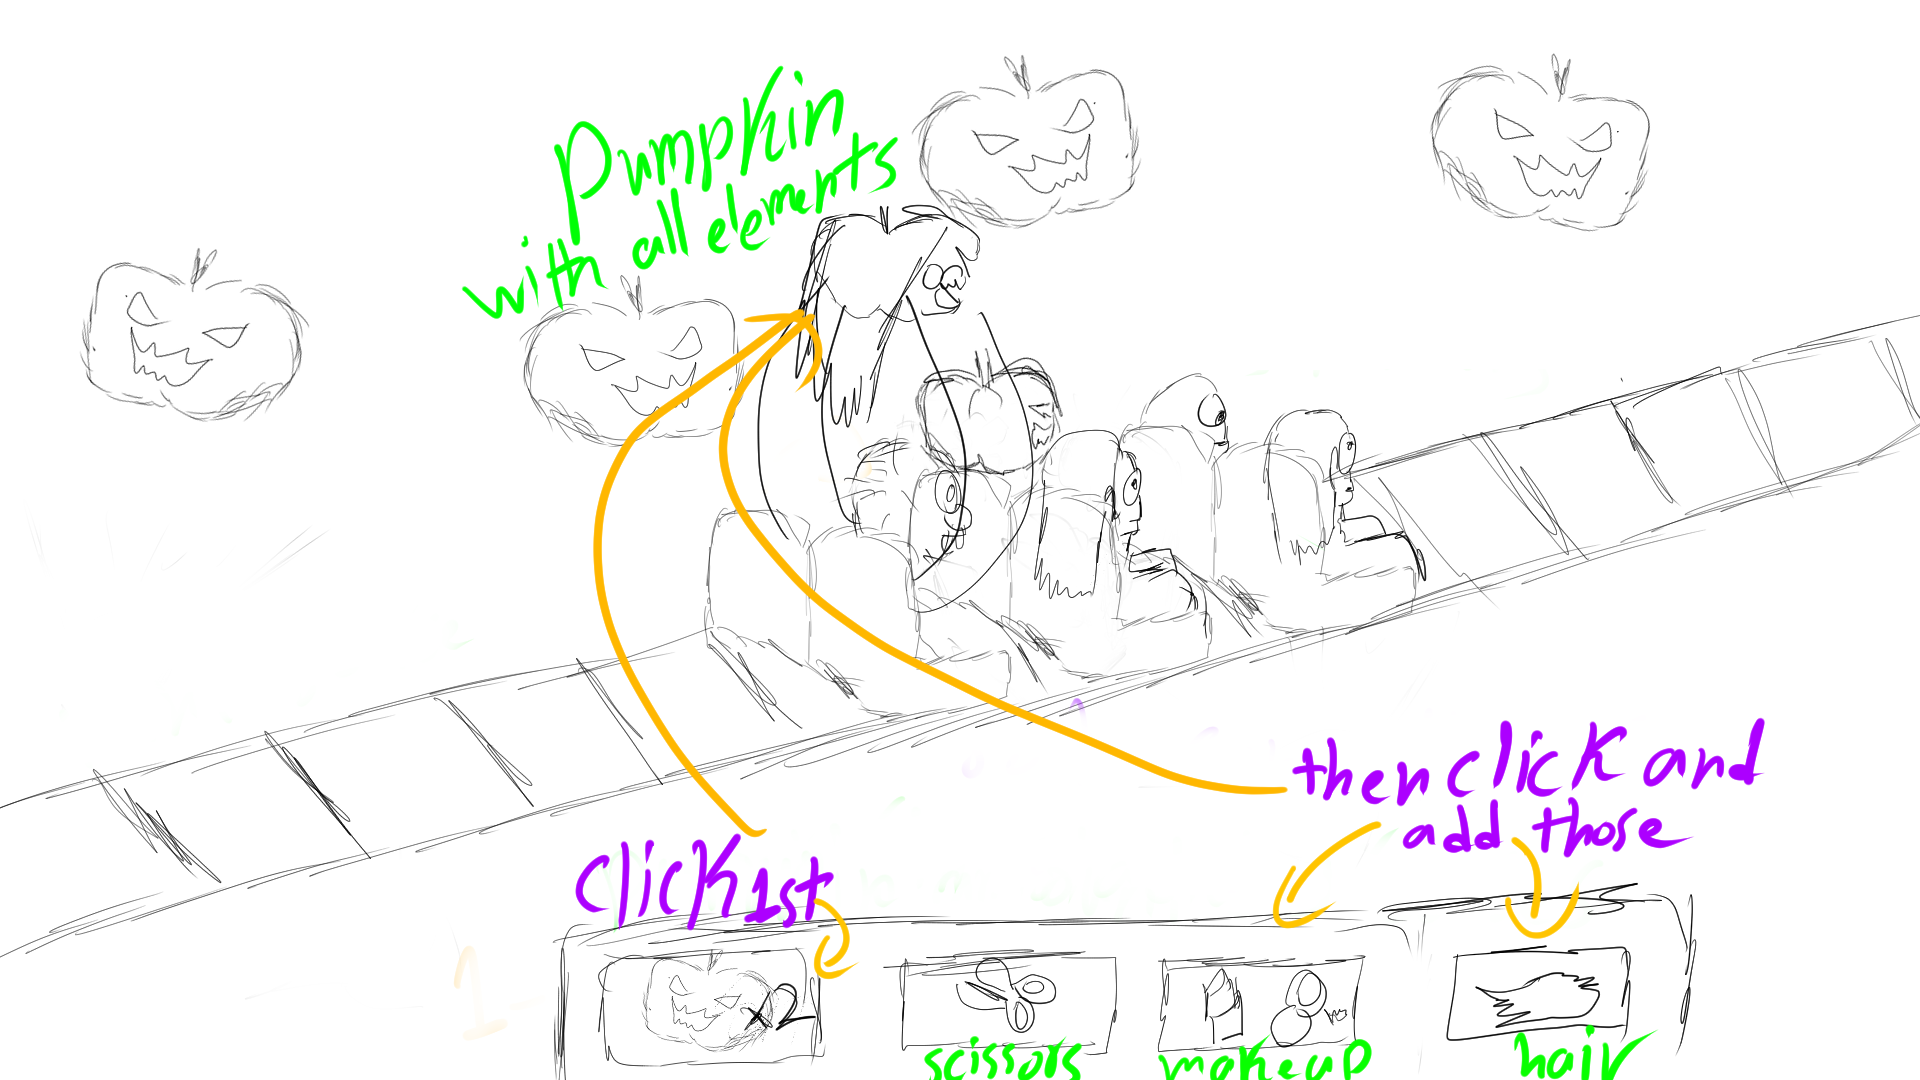 Pumpkin
with all elements
then click and
add those
click 1st
x2
scissors
makeup
hair
1